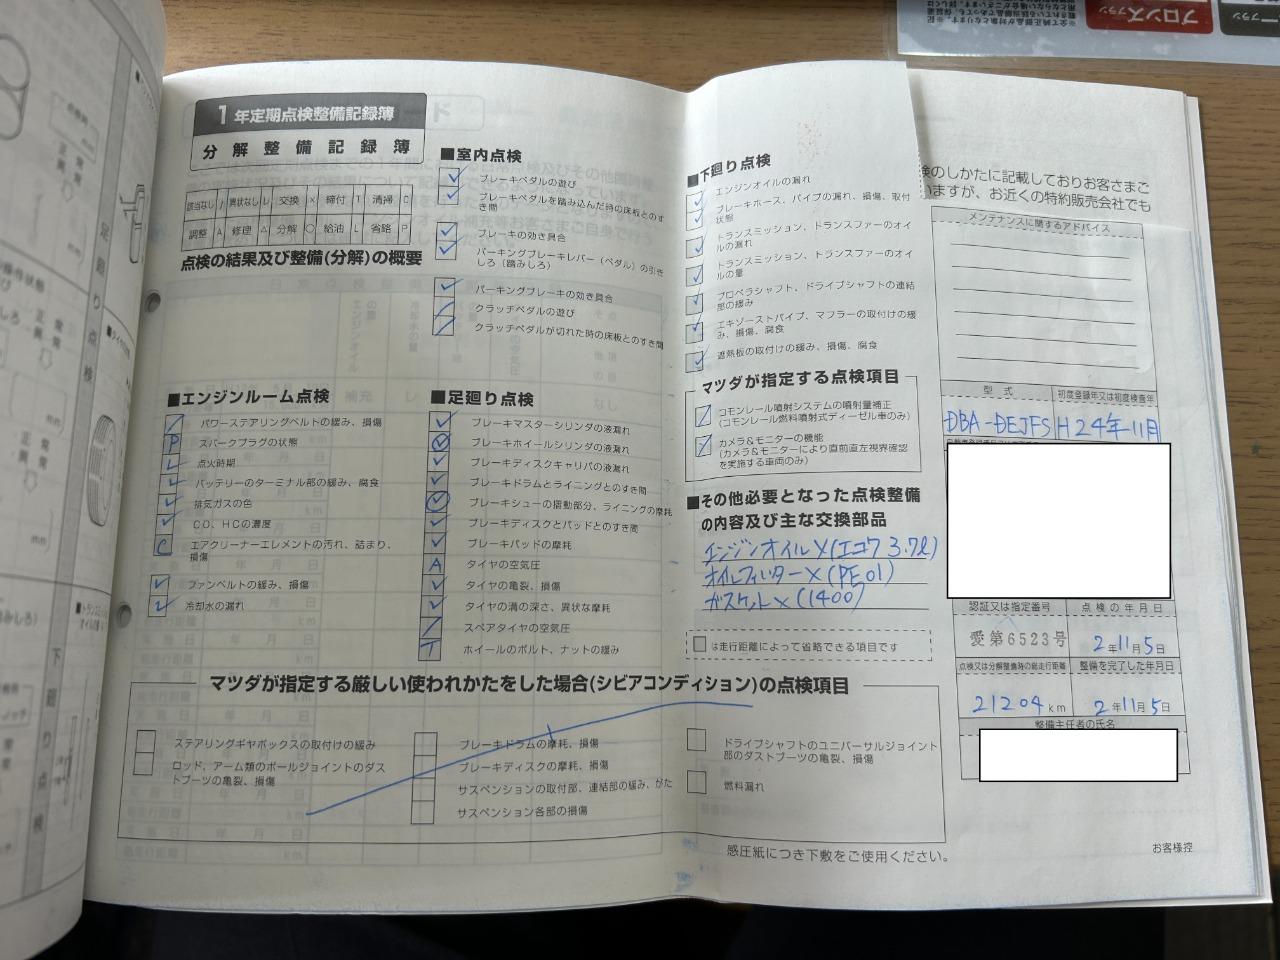 ブロンズプラン
1年定期点検整備記録簿
分解整備記録簿
該当なし / 異状なし レ 交換 × 締付 T 清掃 C
調整 A 修理 △ 分解 ○ 給油 L 省略 P
点検の結果及び整備(分解)の概要
■エンジンルーム点検
/ パワーステアリングベルトの緩み、損傷
P スパークプラグの状態
レ 点火時期
レ バッテリーのターミナル部の緩み、腐食
レ 排気ガスの色
レ CO、HCの濃度
C エアクリーナーエレメントの汚れ、詰まり、
損傷
レ ファンベルトの緩み、損傷
レ 冷却水の漏れ
■室内点検
レ ブレーキペダルの遊び
レ ブレーキペダルを踏み込んだ時の床板とのす
き間
レ ブレーキの効き具合
レ パーキングブレーキレバー(ペダル)の引き
しろ(踏みしろ)
レ パーキングブレーキの効き具合
/ クラッチペダルの遊び
/ クラッチペダルが切れた時の床板とのすき間
■足廻り点検
レ ブレーキマスターシリンダの液漏れ
レ ブレーキホイールシリンダの液漏れ
レ ブレーキディスクキャリパの液漏れ
レ ブレーキドラムとライニングとのすき間
レ ブレーキシューの摺動部分、ライニングの摩耗
レ ブレーキディスクとパッドとのすき間
レ ブレーキパッドの摩耗
A タイヤの空気圧
レ タイヤの亀裂、損傷
レ タイヤの溝の深さ、異状な摩耗
/ スペアタイヤの空気圧
T ホイールのボルト、ナットの緩み
■下廻り点検
レ エンジンオイルの漏れ
レ ブレーキホース、パイプの漏れ、損傷、取付
状態
レ トランスミッション、トランスファーのオイ
ルの漏れ
レ トランスミッション、トランスファーのオイ
ルの量
レ プロペラシャフト、ドライブシャフトの連結
部の緩み
レ エキゾーストパイプ、マフラーの取付けの緩
み、損傷、腐食
レ 遮熱板の取付けの緩み、損傷、腐食
マツダが指定する点検項目
コモンレール噴射システムの噴射量補正
(コモンレール燃料噴射式ディーゼル車のみ)
カメラ&モニターの機能
(カメラ&モニターにより直前直左視界確認
を実施する車両のみ)
■その他必要となった点検整備
の内容及び主な交換部品
エンジンオイル×(エコ7 3.7ℓ)
オイルフィルター×(PE01)
ガスケット×(1400)
は走行距離によって省略できる項目です
マツダが指定する厳しい使われかたをした場合(シビアコンディション)の点検項目
ステアリングギヤボックスの取付けの緩み
ロッド、アーム類のボールジョイントのダス
トブーツの亀裂、損傷
ブレーキドラムの摩耗、損傷
ブレーキディスクの摩耗、損傷
サスペンションの取付部、連結部の緩み、がた
サスペンション各部の損傷
ドライブシャフトのユニバーサルジョイント
部のダストブーツの亀裂、損傷
燃料漏れ
感圧紙につき下敷をご使用ください。
検のしかたに記載しておりお客さまご
いますが、お近くの特約販売会社でも
メンテナンスに関するアドバイス
型式 初度登録年又は初度検査年
DBA-DEJFS H24年11月
認証又は指定番号 点検の年月日
愛第6523号 2年11月5日
点検又は分解整備時の総走行距離 整備を完了した年月日
21204km 2年11月5日
整備主任者の氏名
お客様控